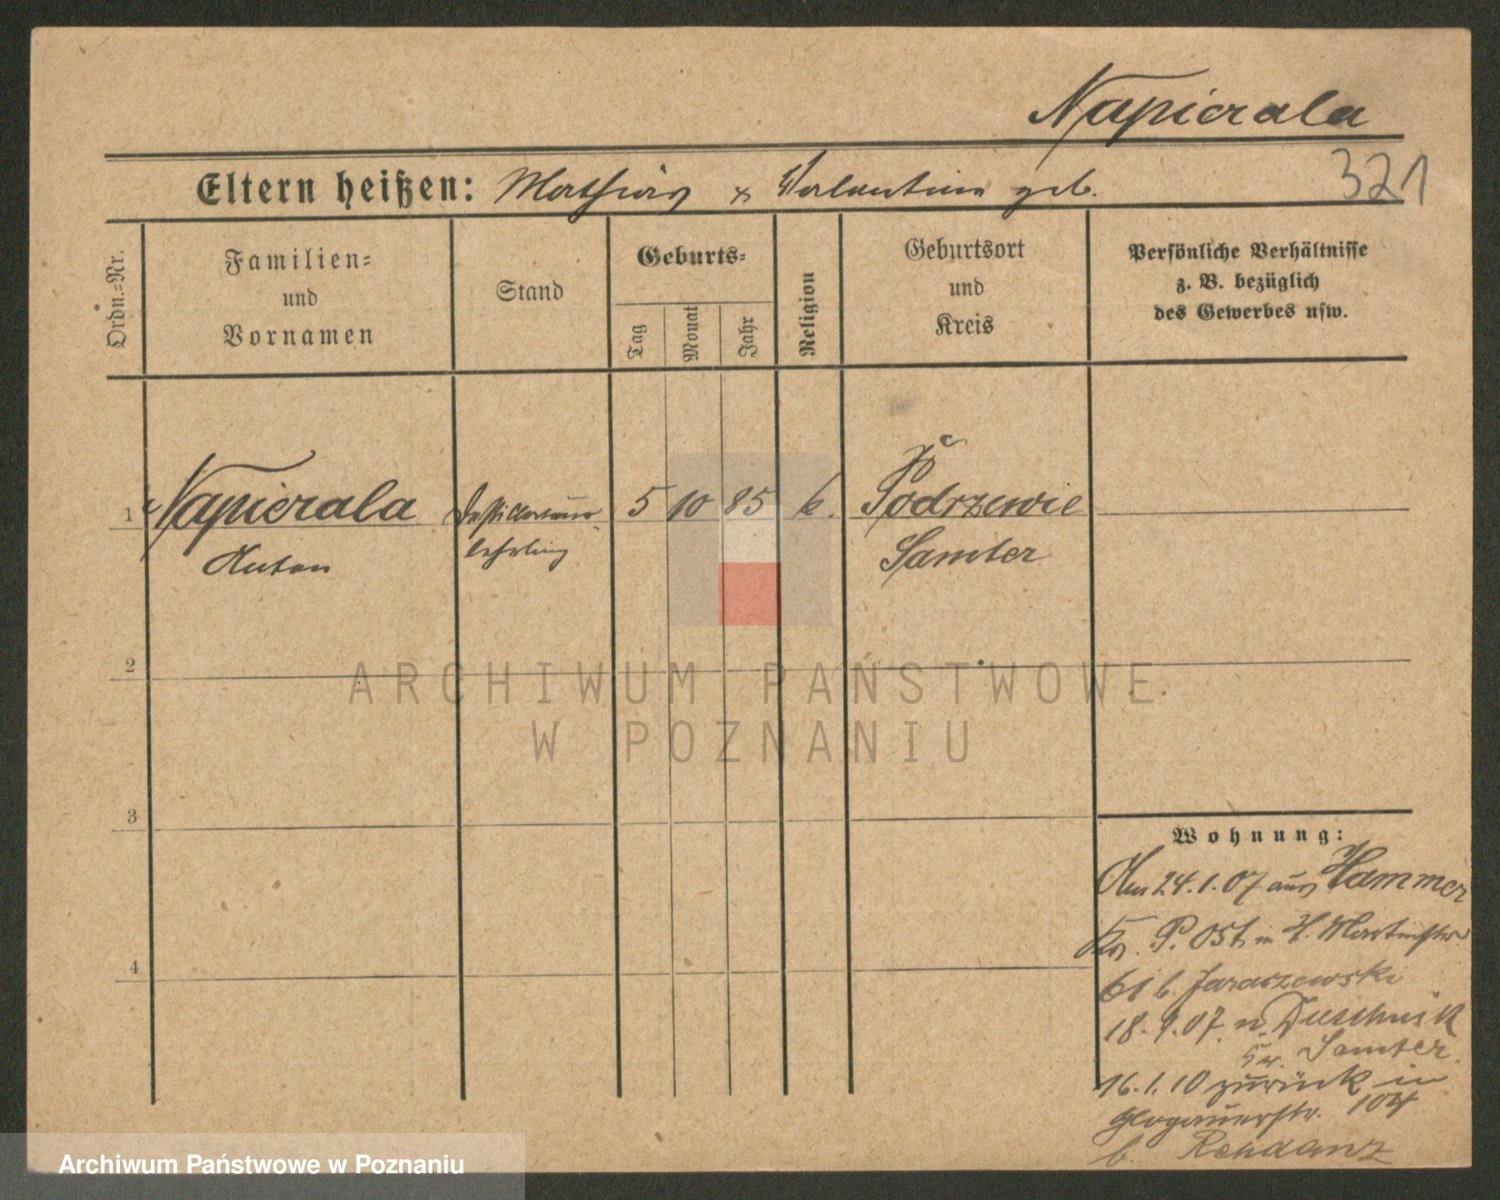 Napierala
321
Eltern heißen: Mathias & Valentina geb.
Ordn.-Nr.
Familien-
und
Vornamen
Stand
Geburts-
Tag
Monat
Jahr
Religion
Geburtsort
und
Kreis
Persönliche Verhältnisse
z. B. bezüglich
des Gewerbes usw.
1 Napierala 5 10 85 k. Podrzewie
Anton lehrling Samter
2
3
4
Wohnung:
Am 24.1.07 aus Hammer
Kr. P. Ost in H. Martinstr
61 b. Jaraczewski
18.9.07 n. Duschnik
Kr. Samter
16.1.10 zurück in
Glogauerstr. 104
b. Rehdanz
ARCHIWUM PAŃSTWOWE
W POZNANIU
Archiwum Państwowe w Poznaniu